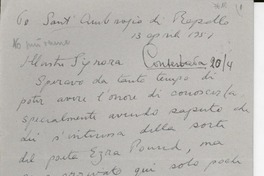 60 Sant' Ambrogio di Rapallo
13 aprile 1951
Contestada 20/4
Illustre Signora
Speravo da tanto tempo di
poter avere l'onore di conoscerla
specialmente avendo saputo che
Lei s'interessa della sorte
del poeta Ezra Pound, ma
qui solo pochi